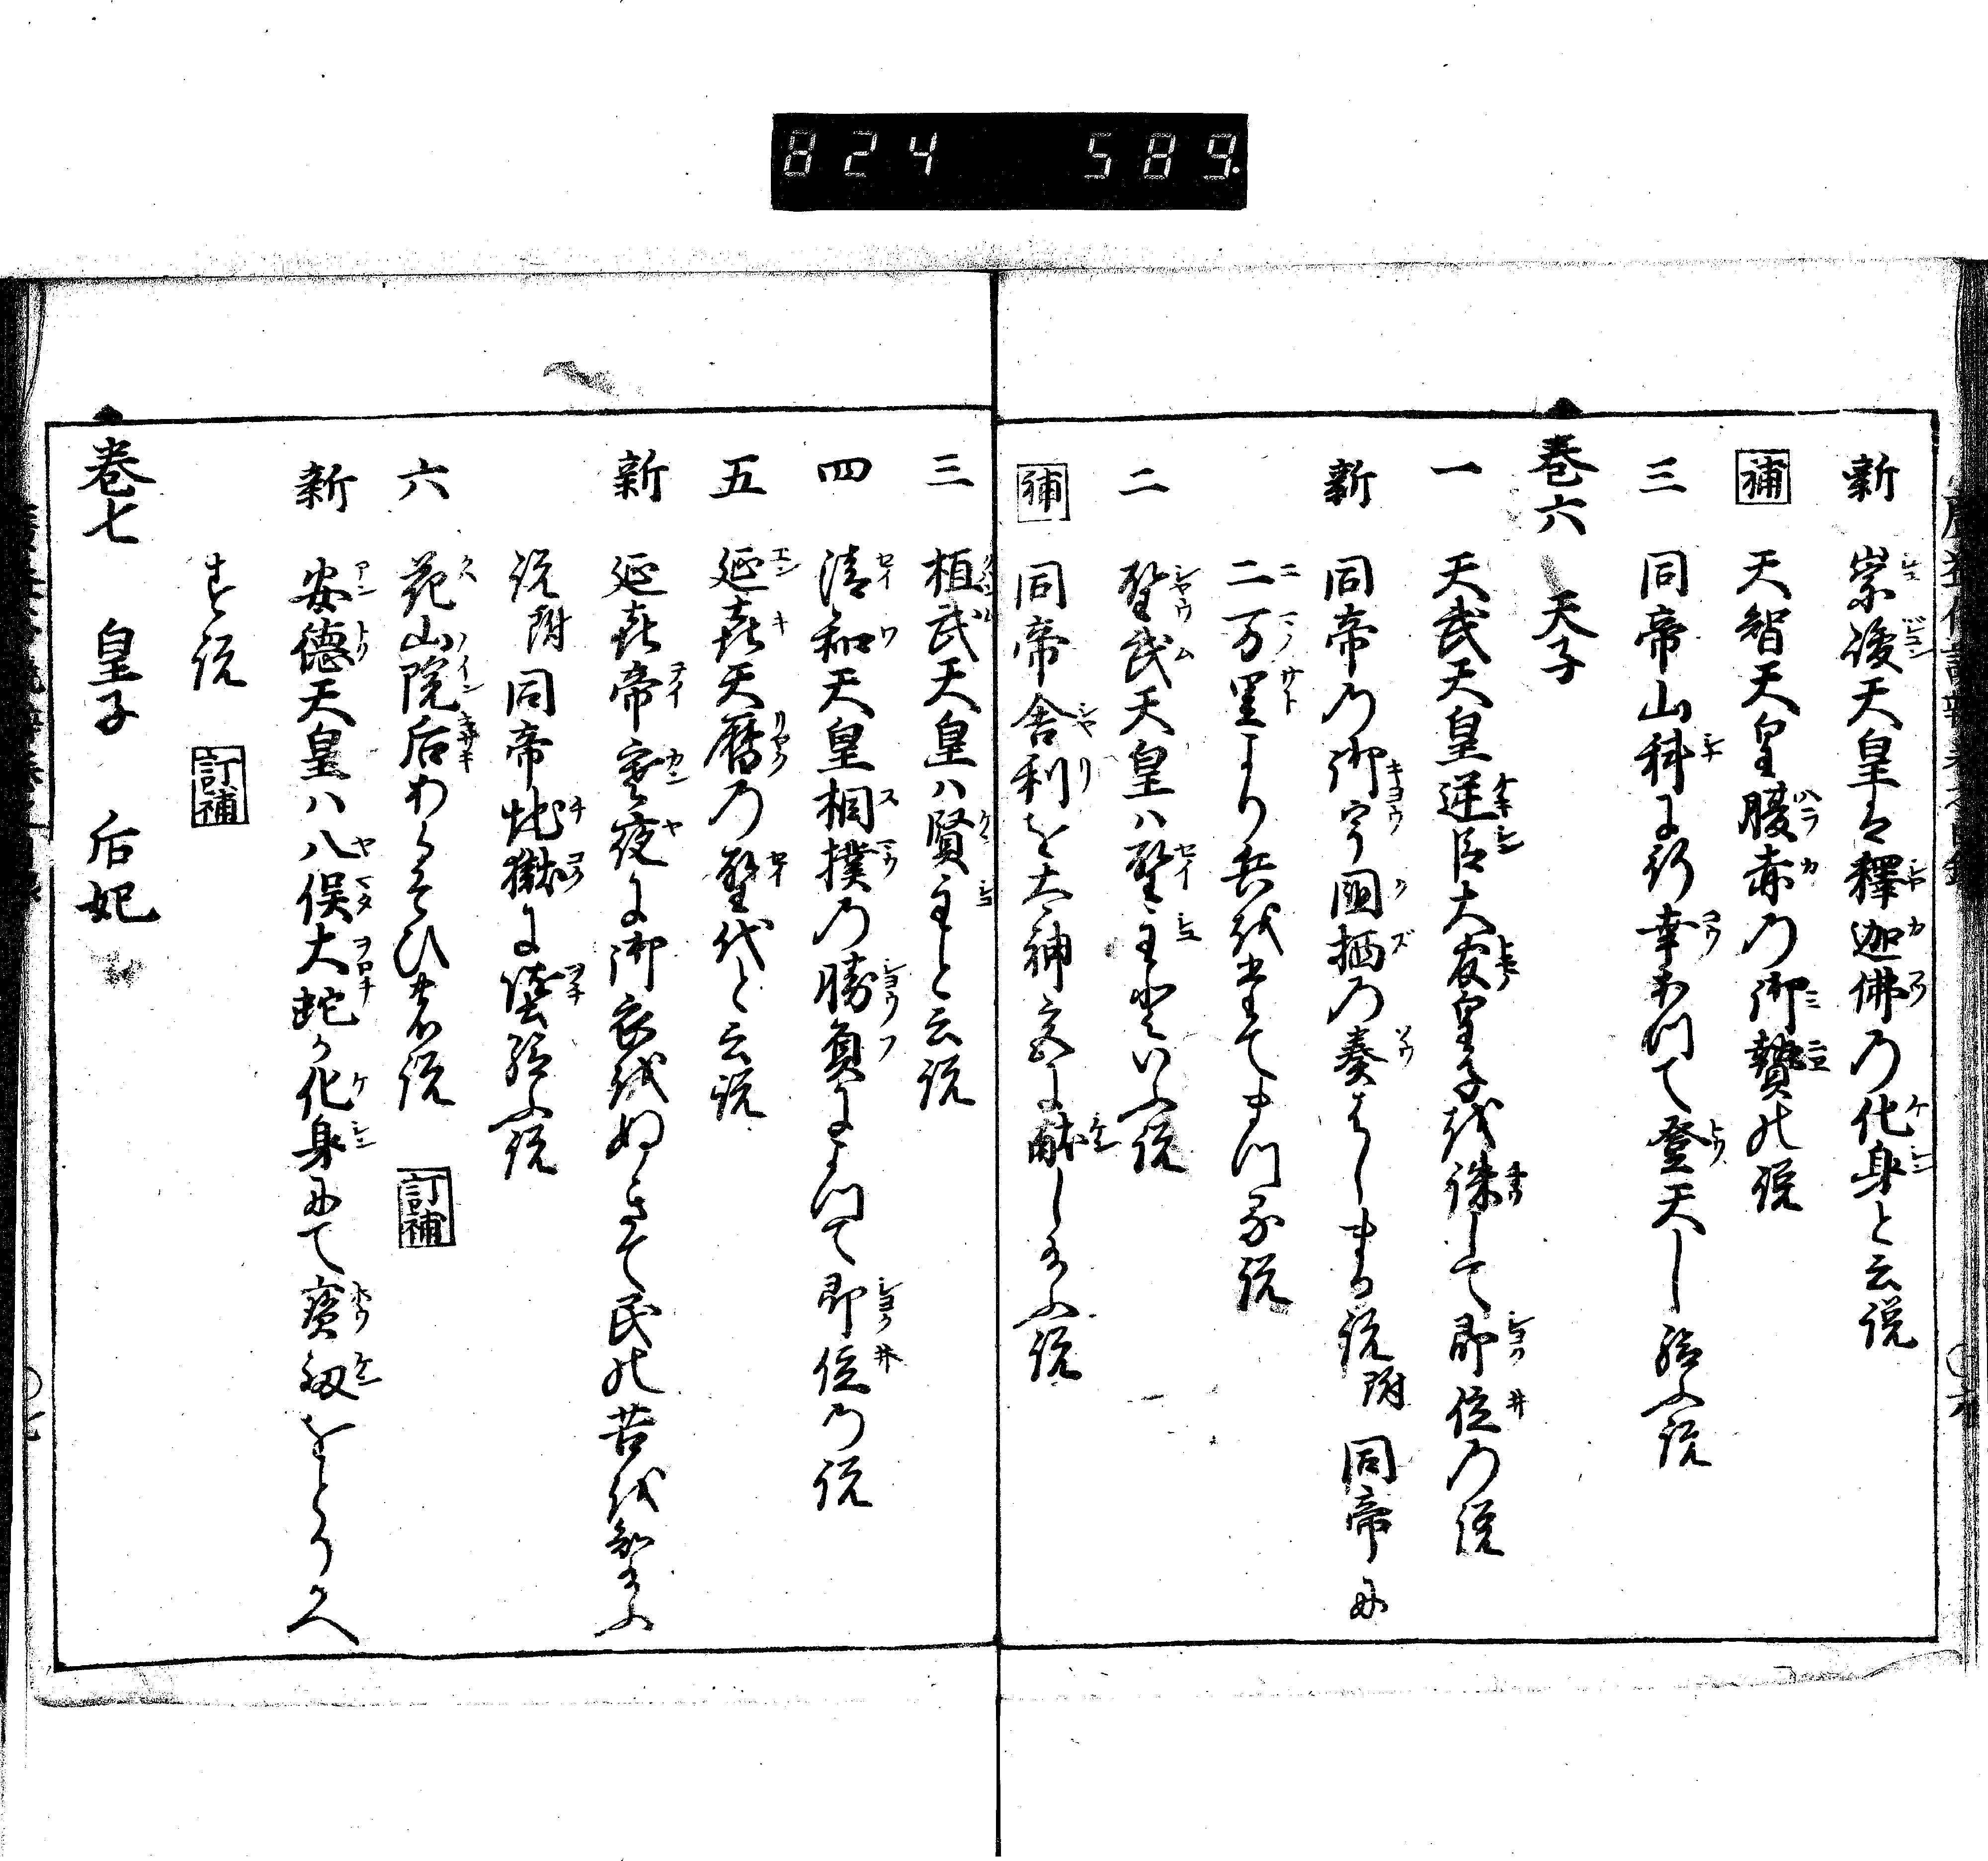 824 589.
新 崇峻天皇は釋迦佛の化身と云説
補 天智天皇腹赤の御贄の説
三 同帝山科に行幸あつて登天し給ふ説
巻六 天子
一 天武天皇逆臣大友皇子を誅して即位の説
新 同帝の御宇國栖の奏はしまる説附同帝に
二万里より兵をたてまつる説
二 聖武天皇ハ聖主といふ説
補 同帝舎利を太神宮に献し給ふ説
三 桓武天皇ハ賢主と云説
四 清和天皇相撲の勝負によつて即位の説
五 延喜天暦の聖代と云説
新 延喜帝寒夜に御衣をぬきて民の苦を知給ふ
説附同帝地獄に墮給ふ説
六 花山院后あらそひの説 訂補
新 安徳天皇ハ八俣大蛇の化身にて寳劔をとりかへ
す説 訂補
巻七 皇子 后妃